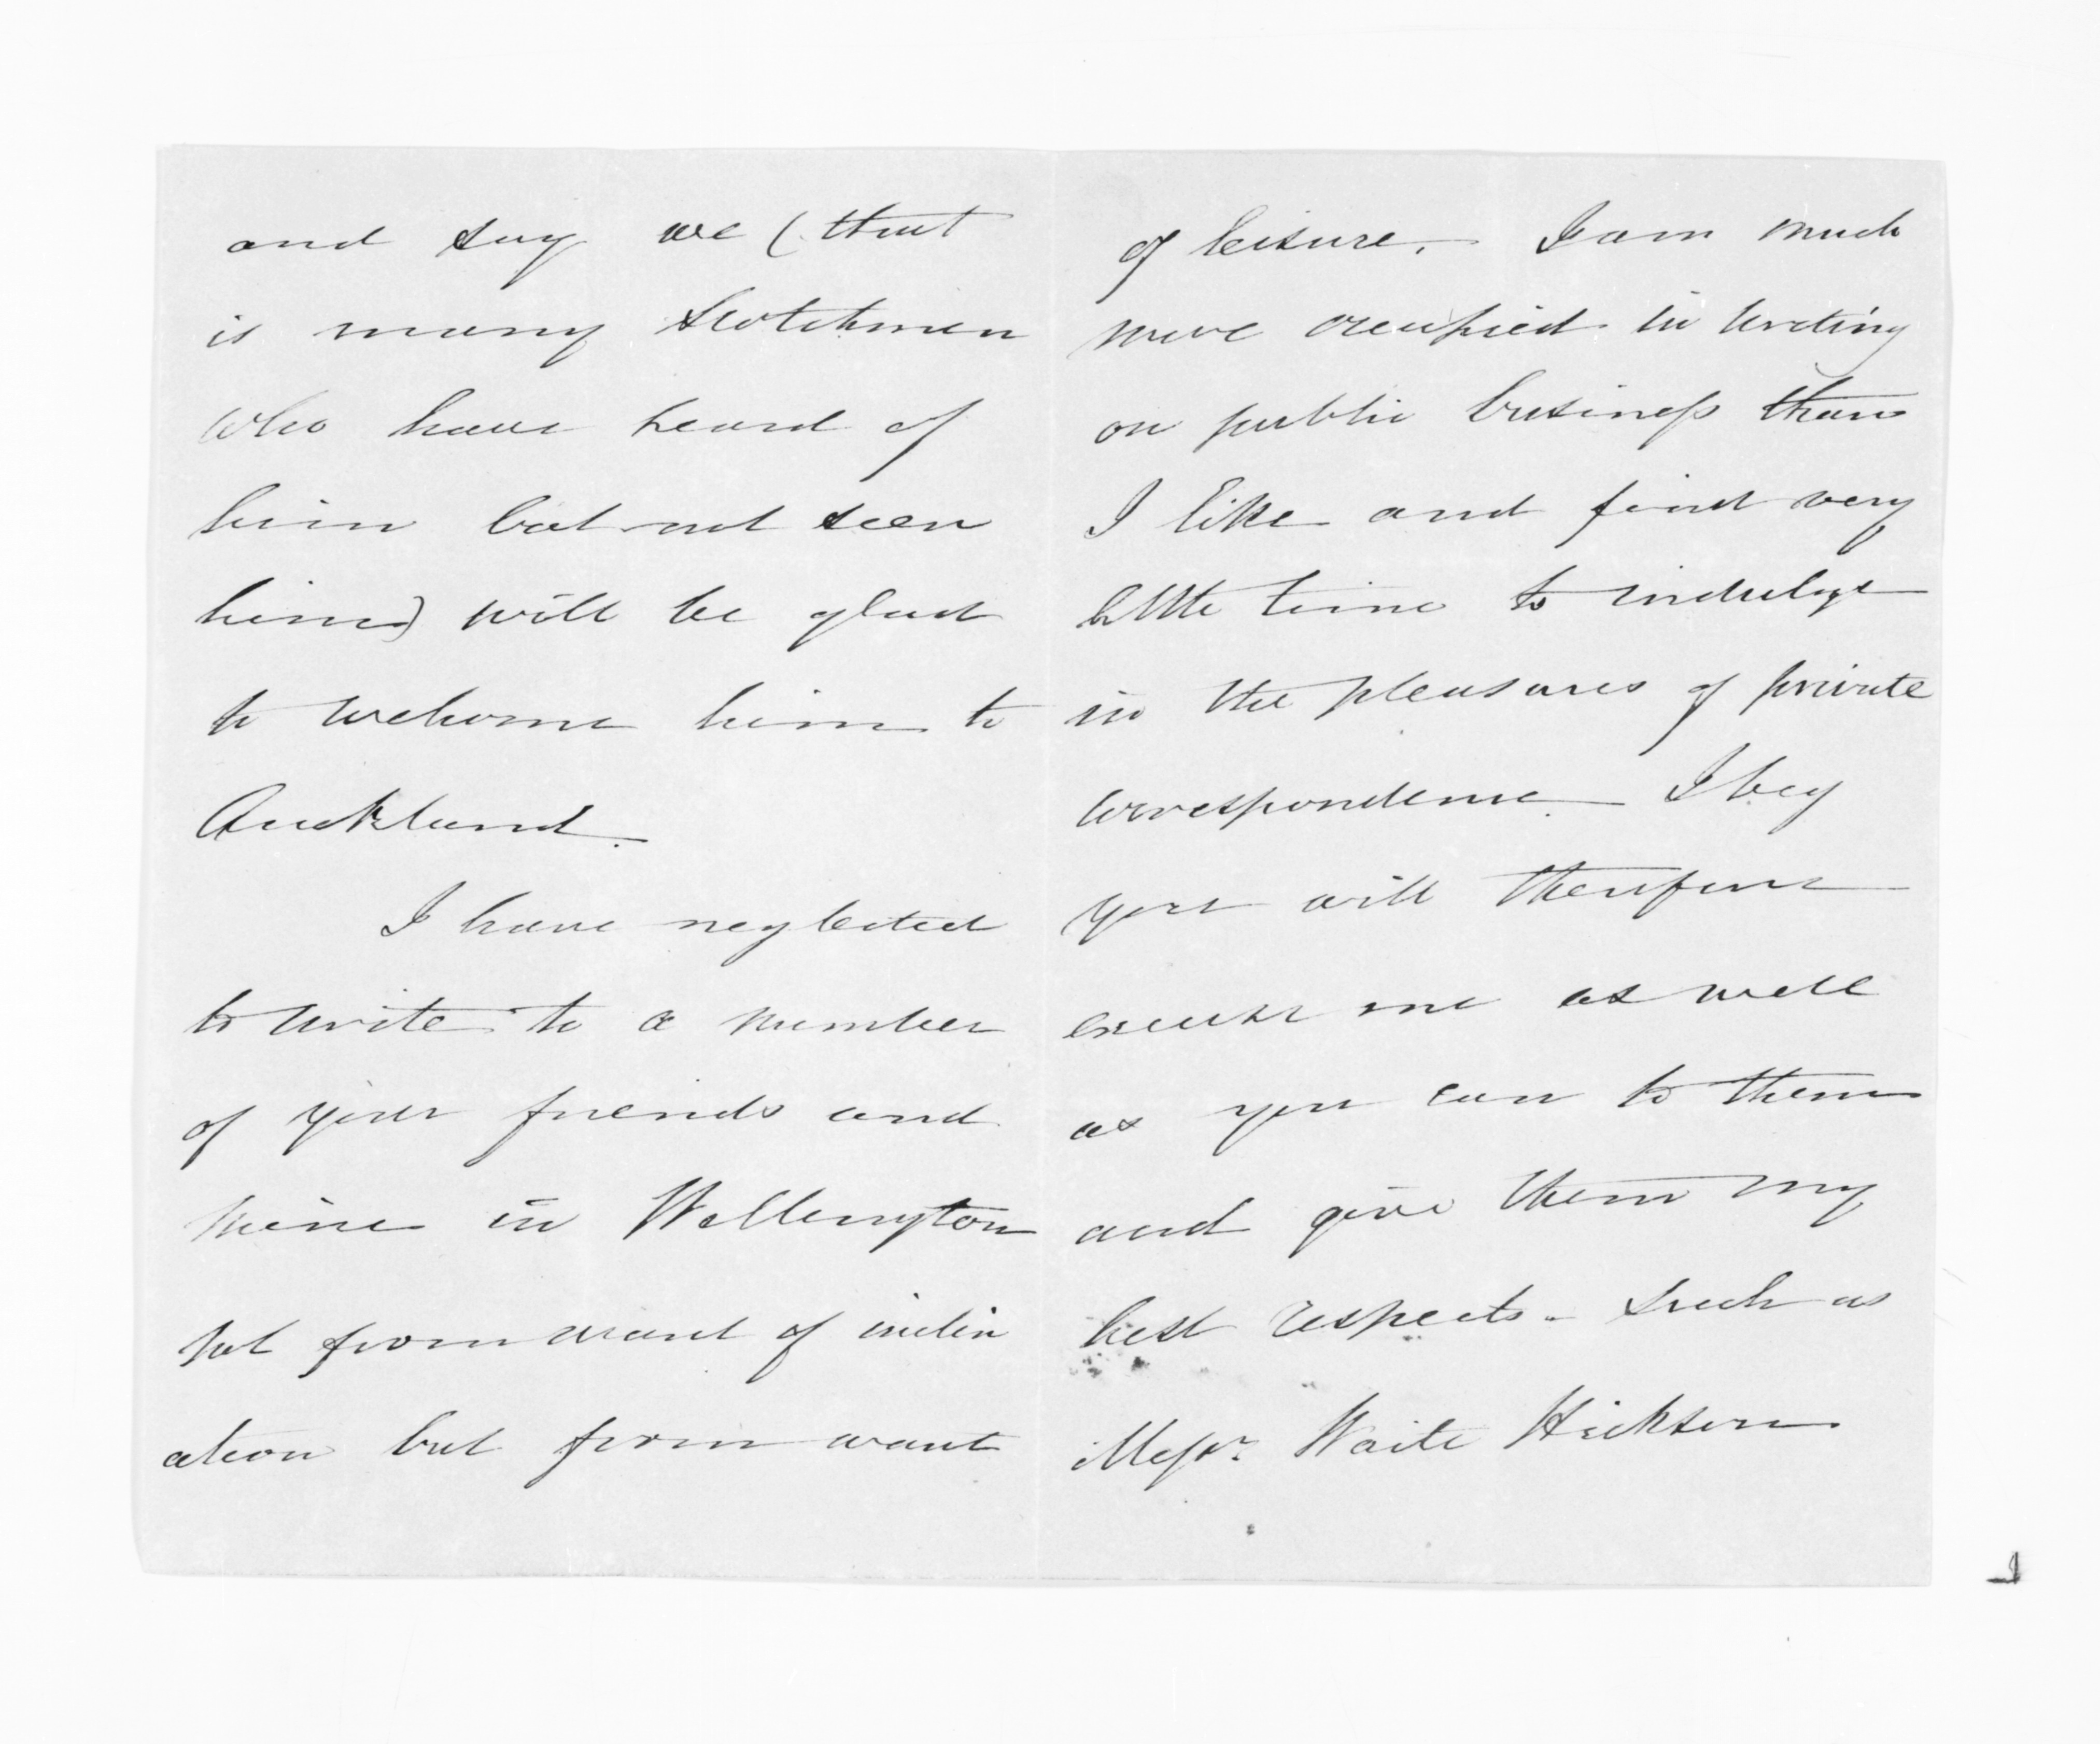 and say we (that
is many Scotchmen
who have heard of
him but not seen
him) will be glad
to welcome him to
Auckland.
I have neglected
to write to a number
of your friends and
mine in Wellington
not from want of inclin
ation but from want
of leisure. I am much
more occupied in writing
on public business than
I like and find very
little time to indulge
in the pleasures of private
correspondence. I beg
you will therefore
excuse me as well
as you can to them
and give them my
best respects. Such as
Messrs. Waite Hickson